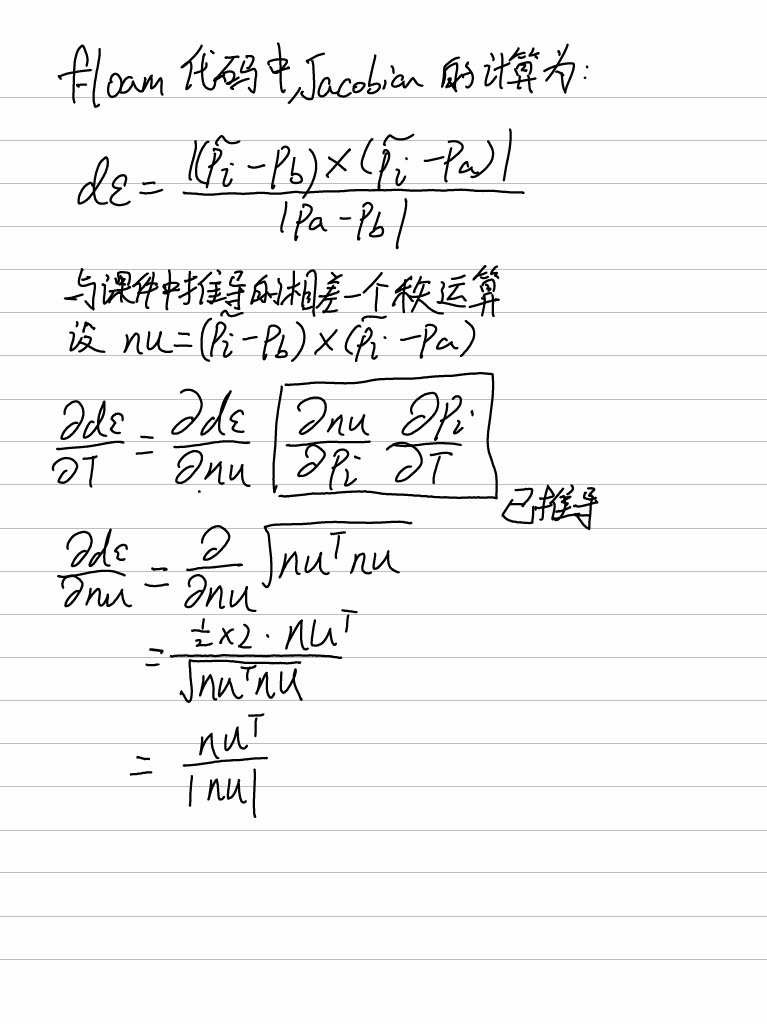 floam 代码中,Jacobian 的计算为:
dε = |(p̃i - Pb) × (p̃i - Pa)| / |Pa - Pb|
与课件中推导的相差一个秩运算
设 nu = (p̃i - Pb) × (p̃i - Pa)
∂dε/∂T = ∂dε/∂nu ∂nu/∂Pi ∂Pi/∂T
已推导
∂dε/∂nu = ∂/∂nu √(nuᵀ nu)
= ½ × 2 · nuᵀ / √(nuᵀ nu)
= nuᵀ / |nu|